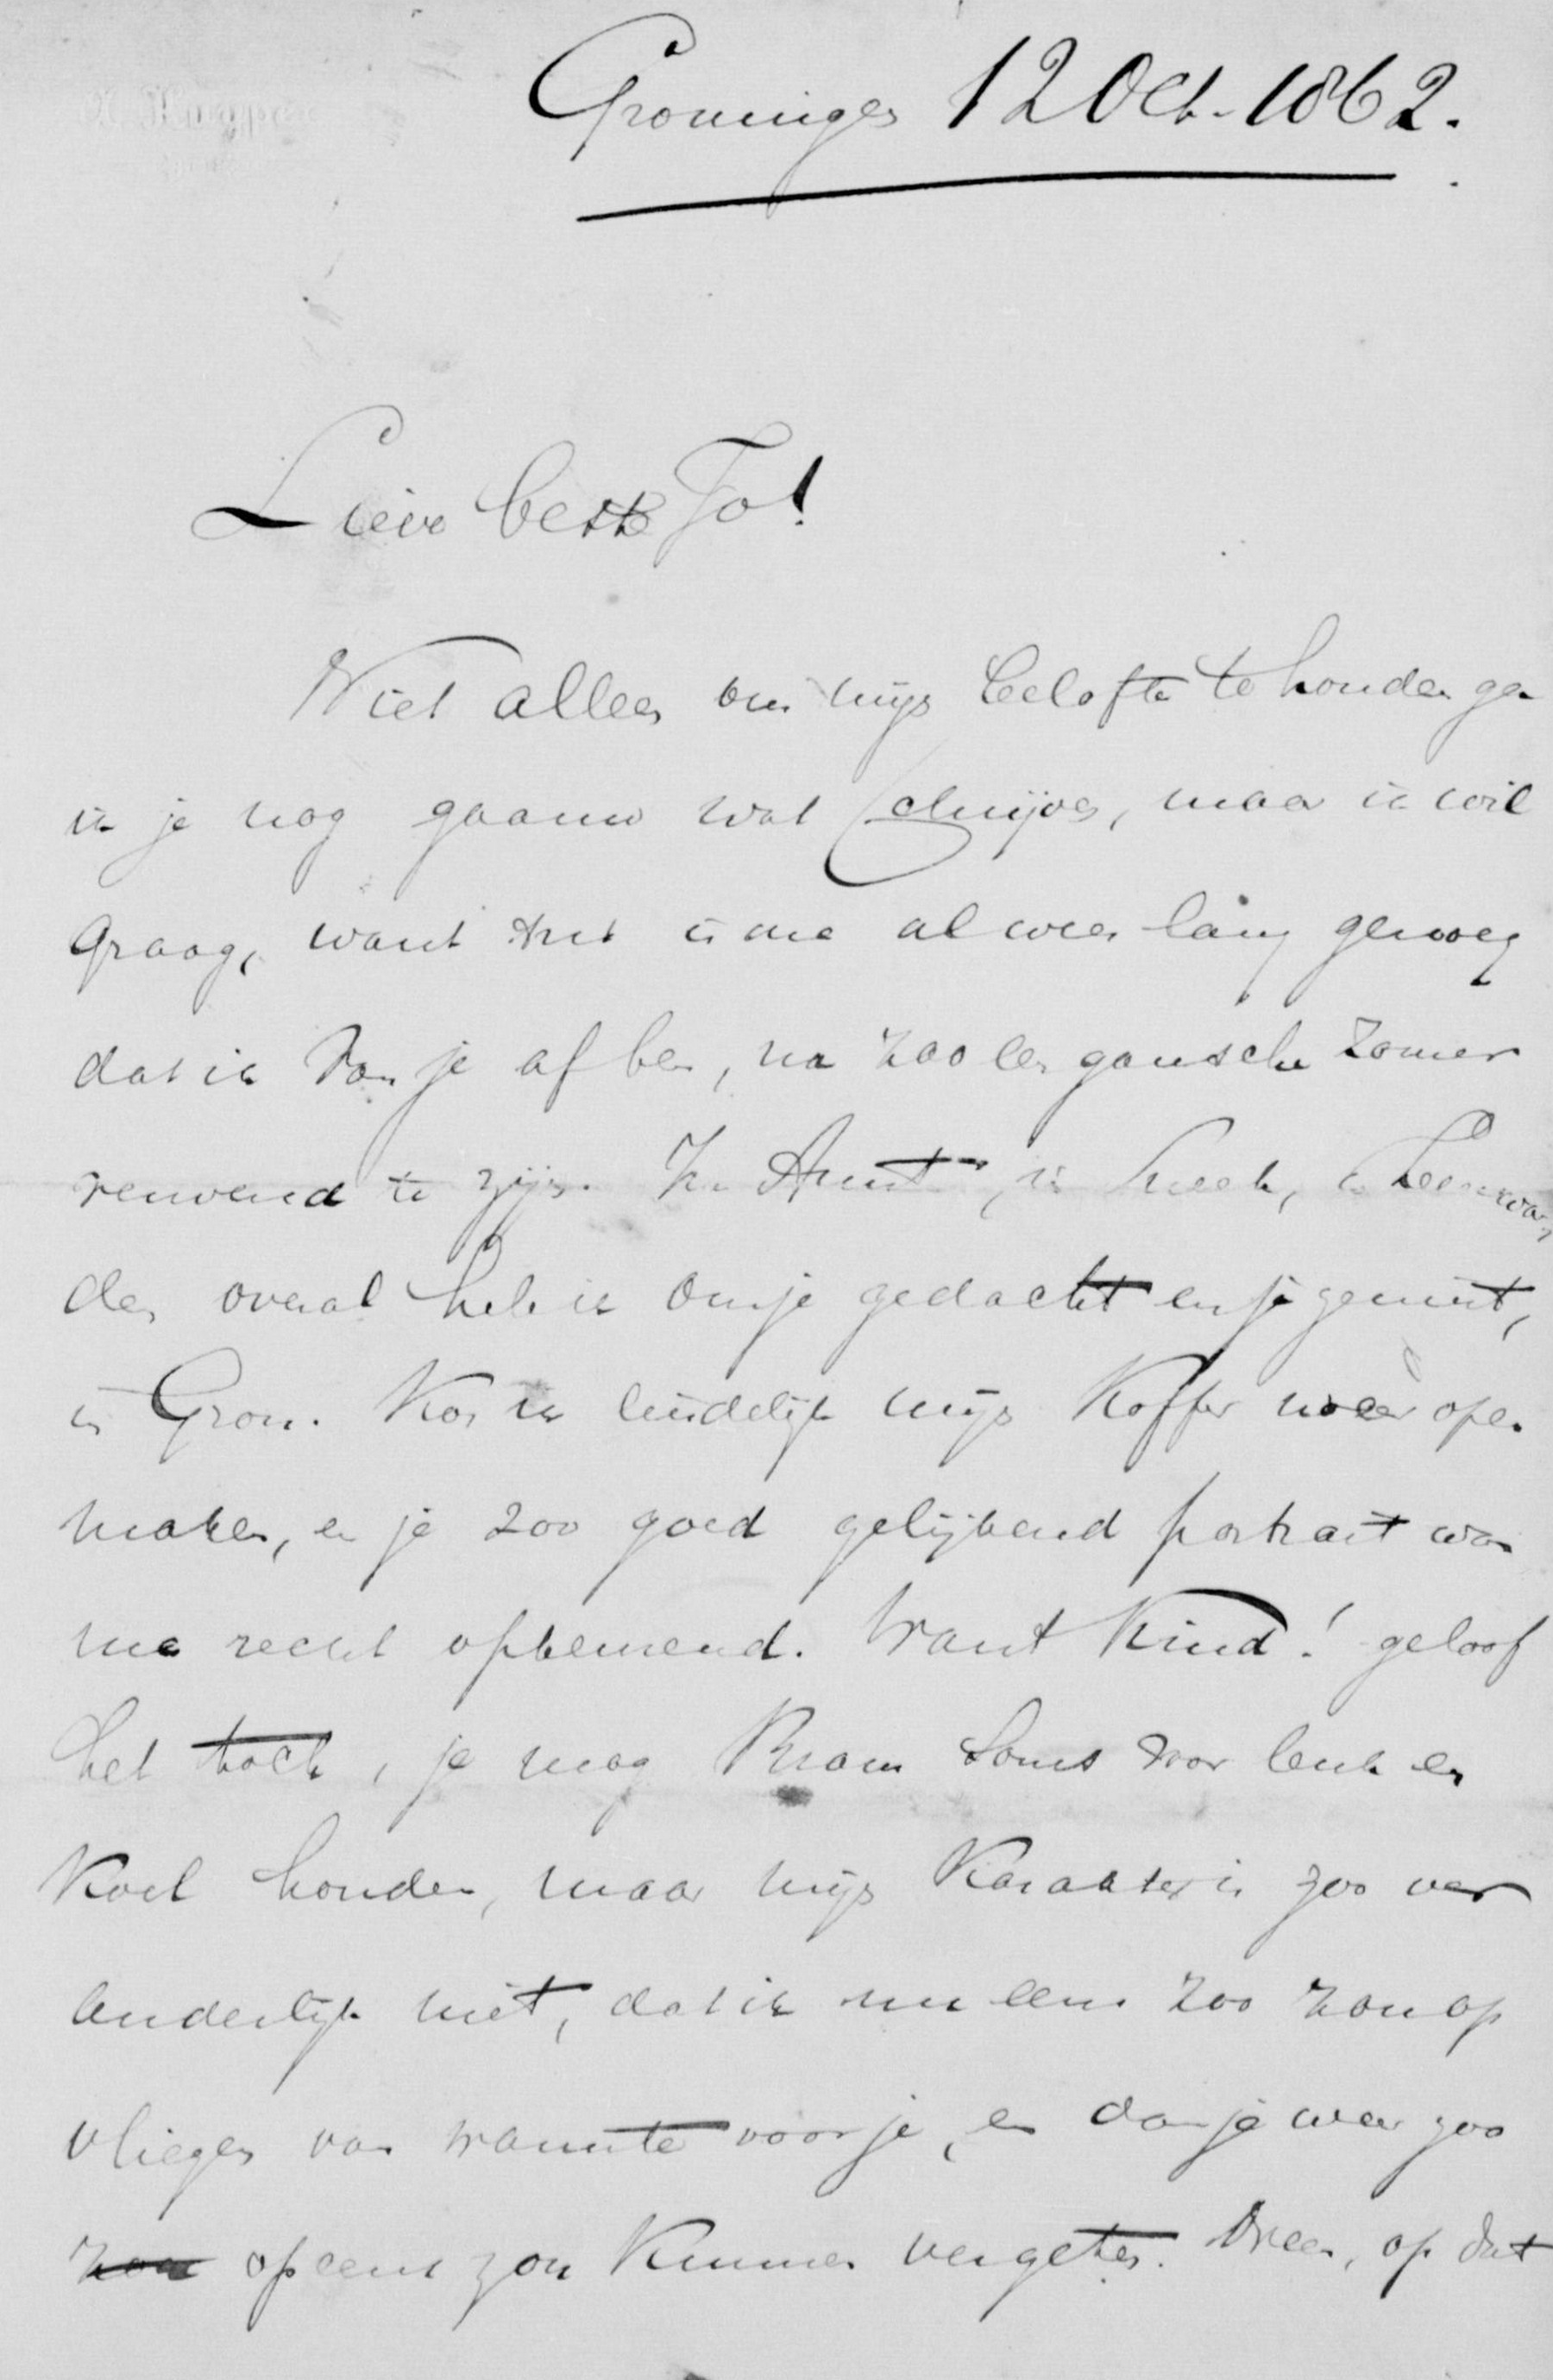 A. Kuyper
Groningen 12 Oct. 1862.
Lieve beste Jo!
Niet alleen om mijn belofte te houden ga
ik je nog gaauw wat schrijven, maar ik wil
graag, want het is me al weer lang genoeg
dat ik van je af ben, na zoo'en gansche zomer
verwend te zijn. In Amst, in Sneek, in Leeuwar
den overal heb ik om je gedacht en je gemist,
in Gron. kon ik eindelijk mijn koffer weer open
maken, en je zoo goed gelijkend portrait was
me recht opbeurend. Want Kind! geloof
het toch, je mag Bram soms voor leuk en
koel houden, maar mijn karakter is zoo ver
anderlijk niet, dat ik nu eens zoo zou op
vliegen van warmte voor je, en dan je weer zoo
zou opeens zou kunnen vergeten. Neen, op dat